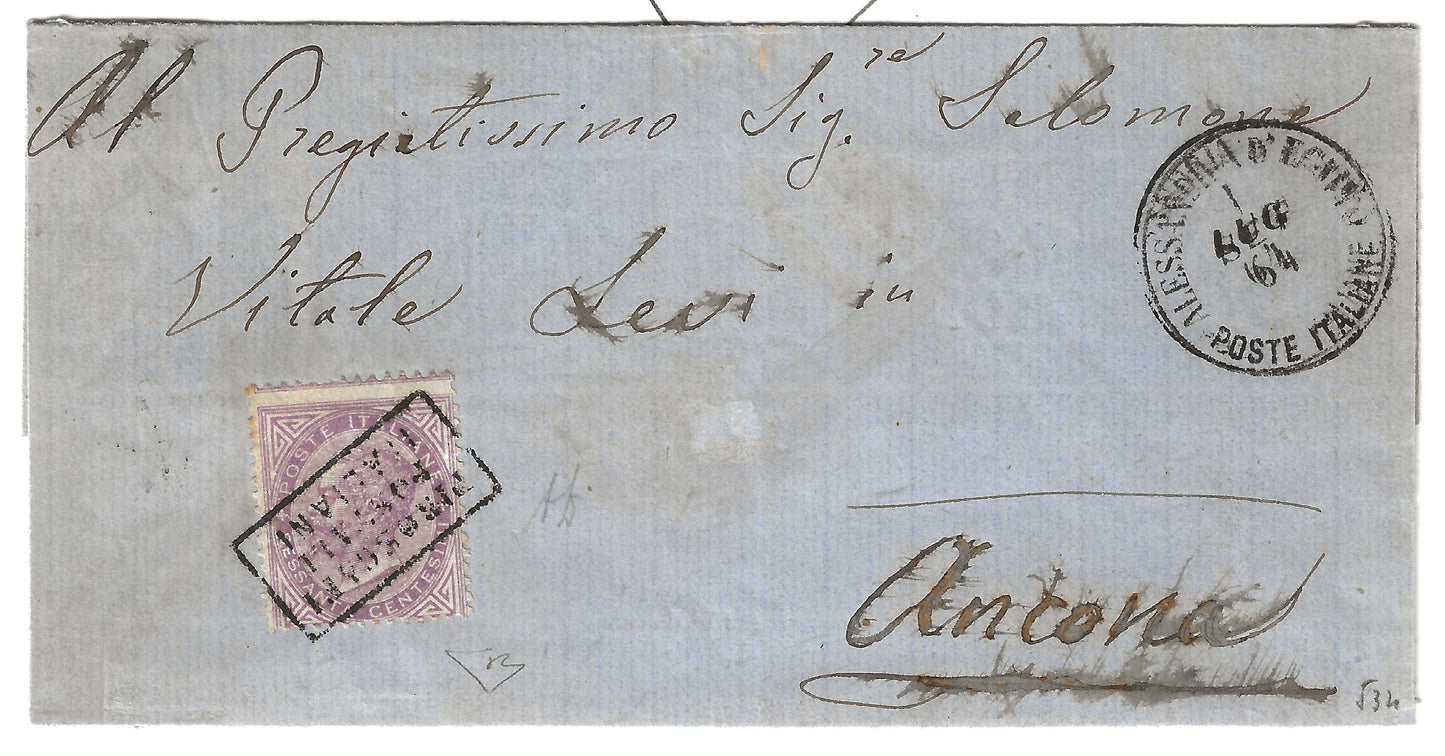 Al Pregiatissimo Sig.re Salomone
Vitale Levi in
Ancona
ALESSANDRIA D'EGITTO
1
LUG
64
POSTE ITALIANE
POSTE ITALIANE
SESSANTA CENTESIMI
PIROSCAFI
POSTALI
ITALIANI